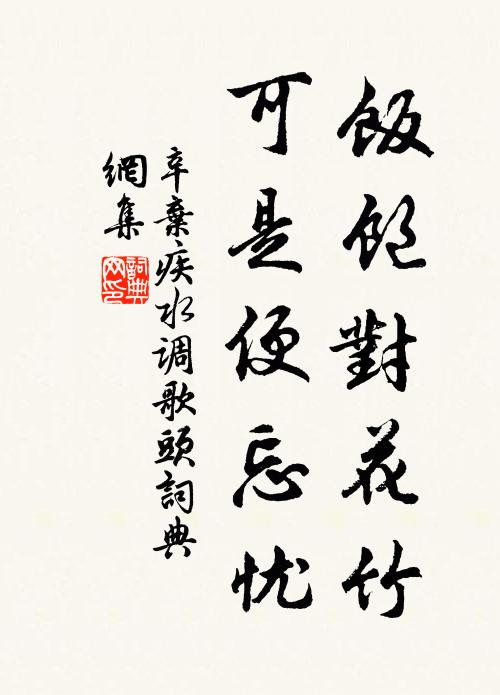 飯飽對花竹
可是便忘忧
辛棄疾水调歌頭詞典
網集
詞典
网印